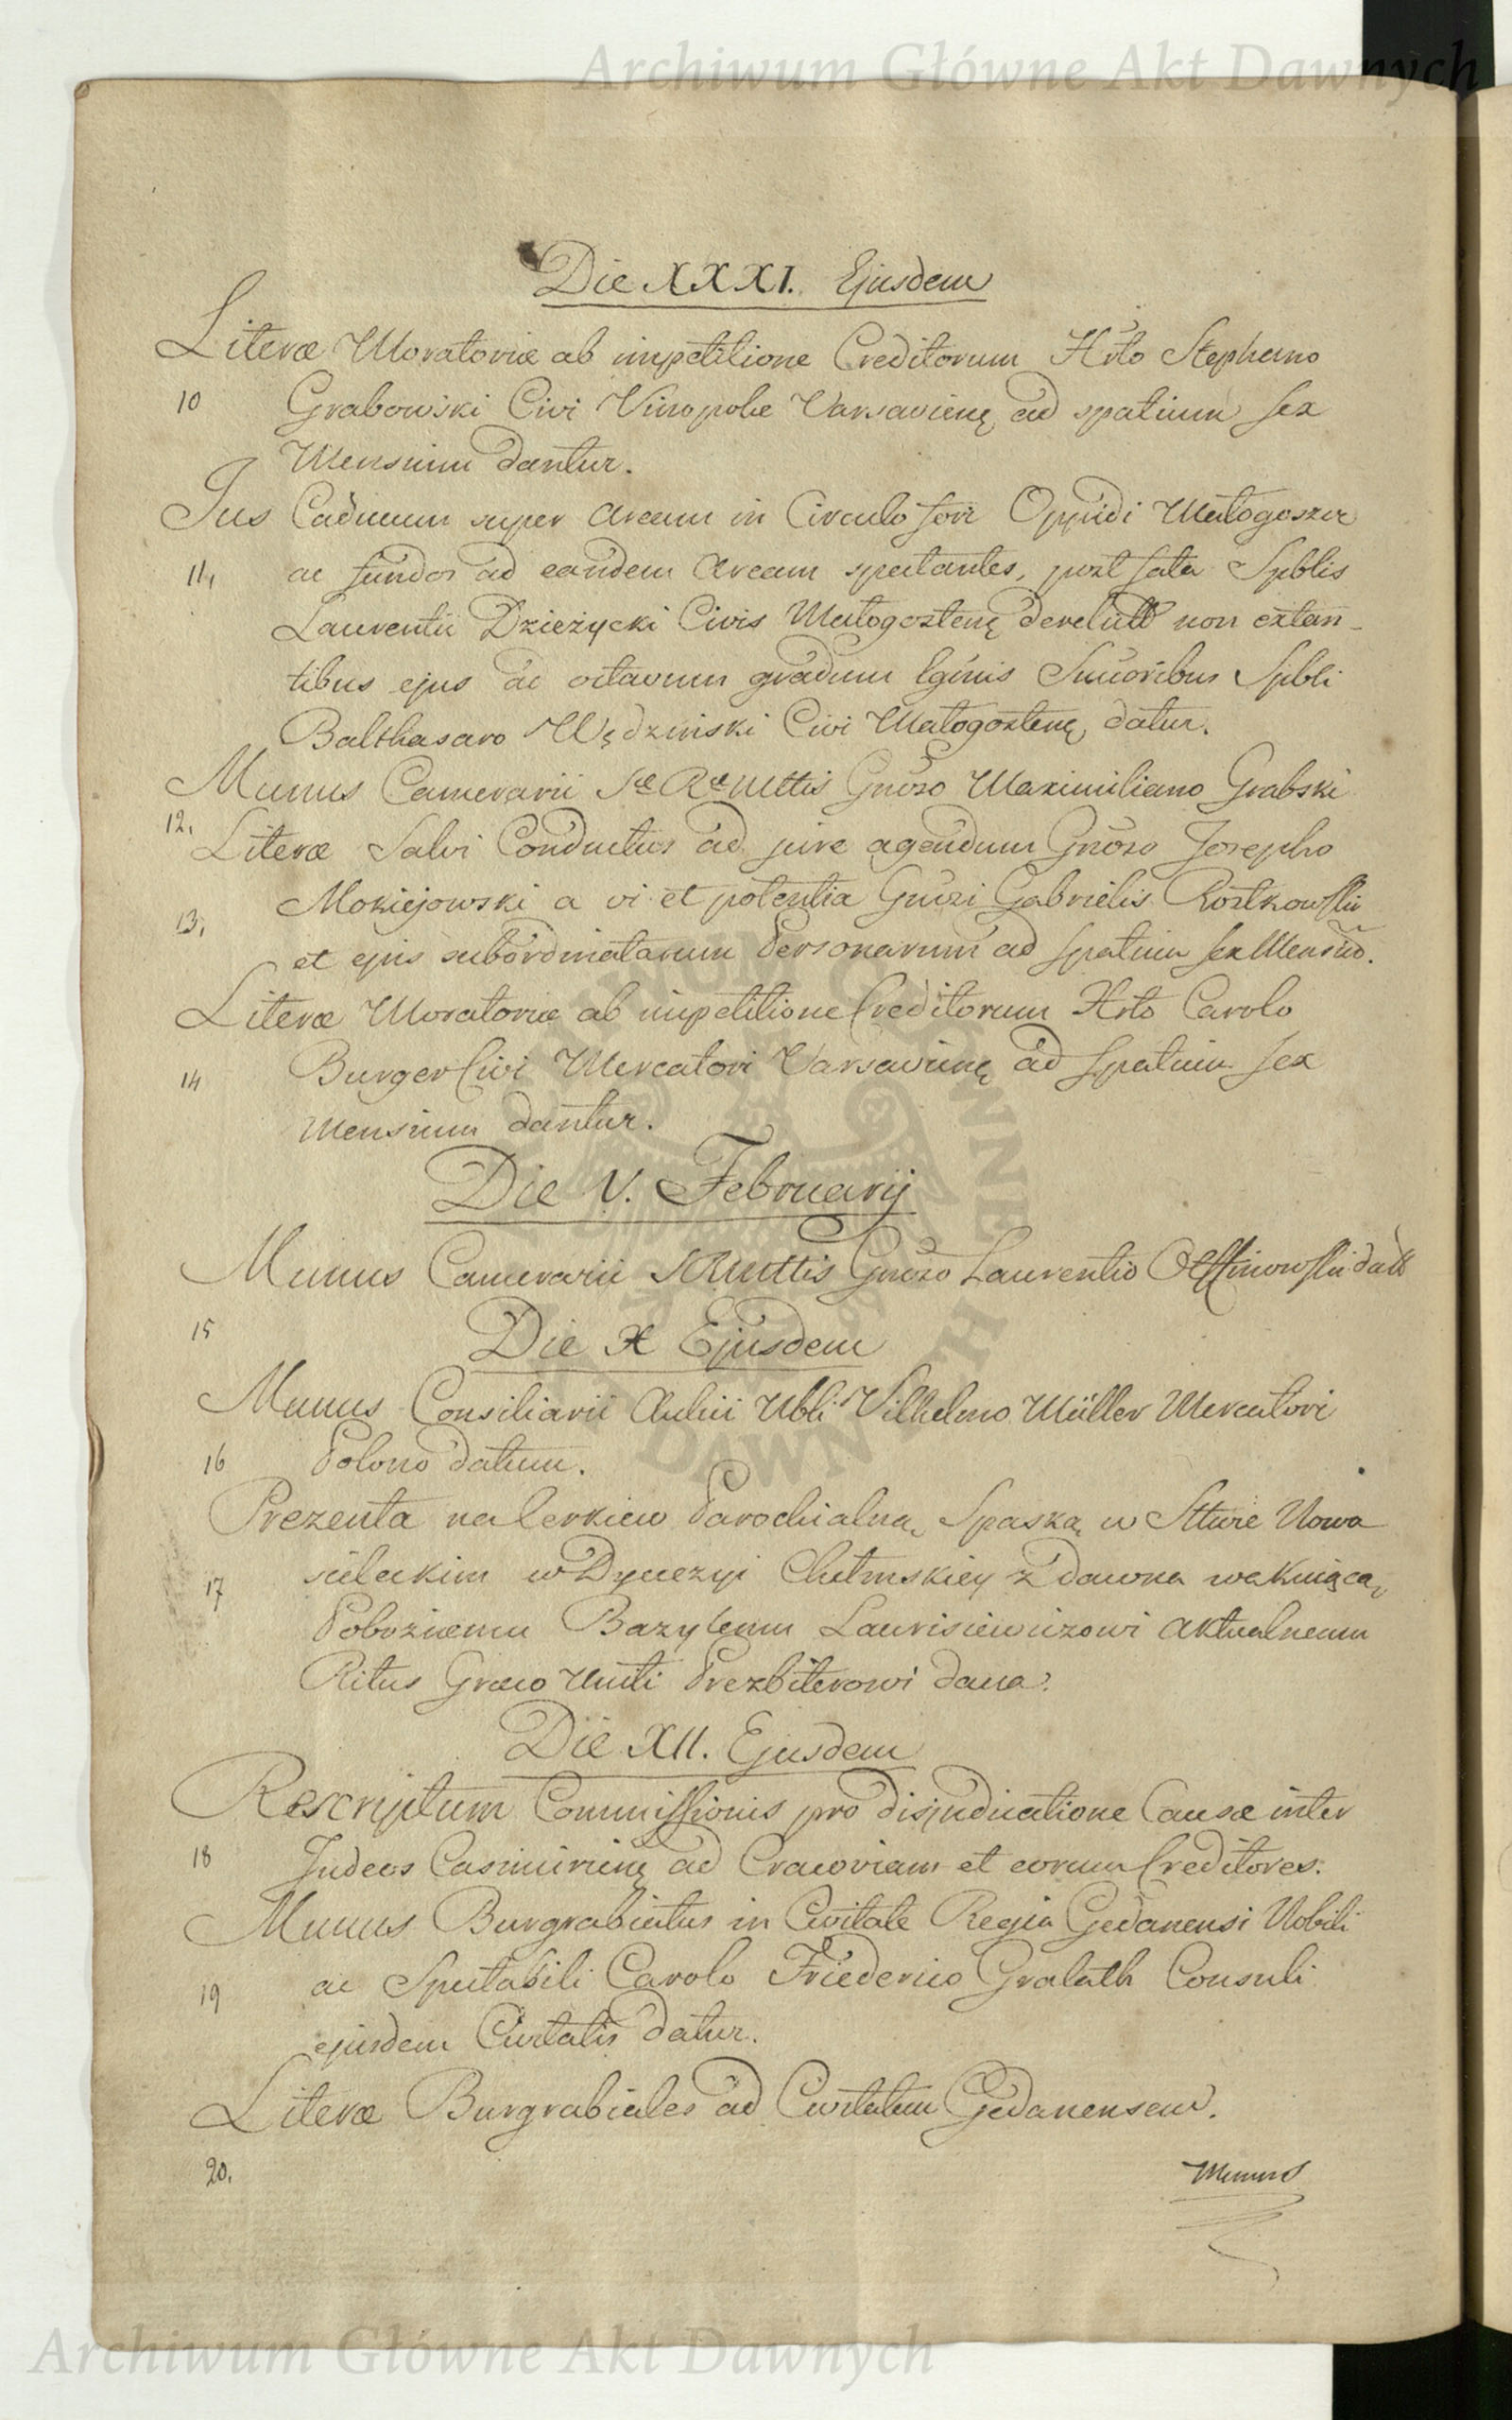 Archiwum Główne Akt Dawnych
Die XXXI. Ejusdem
Literæ Moratoriæ ab impetitione Creditorum Hrto Stephano
10 Grabowski Civi Vinopolæ Varsavienę ad spatium sex
Mensium dantur.
Jus Caducum super Aream in Circulo fori Oppidi Małogoszcz
11, ac fundos ad eandem Aream spectantes, post fata Spblis
Laurentii Dzieżycki Civis Małogostenę derelictt non extan-
tibus ejus ac octavum gradum lginis Succoribus Spbli
Balthasaro Wędzinski Civi Małogostenę datur.
Munus Camerarii Sæ Ræ Mttis Gnoso Maximiliano Grabski
12. Literæ Salvi Conductus ad jure agendum Gnoso Josepho
13, Mokiejowski a vi et potentia Gnosi Gabrielis Rostkowski
et ejus subordinatarum Personarum ad spatium sex Mensiũ.
Literæ Moratoriæ ab impetitione Creditorum Hrto Carolo
14 Burger Civi Mercatori Varsavienę ad spatium sex
mensium dantur.
Die V. Februarij
Munus Camerarii SRMttis Gnoso Laurentio datt
15
Die X Ejusdem
Munus Consiliarii Aulici Nbli Vilhelmo Müller Mercatori
16 Polono datum.
Prezenta na Cerkiew Parochialną Spaską w Sttwie Nowo
17 sieleckim w Dyecezyi Chełmskiey z dawna wakuiącą
Pobożnemu Bazylemu Laurisiewiczowi aktualnemu
Ritus Græco Uniti Prezbiterowi dana.
Die XII. Ejusdem
Rescriptum Commissionis pro disjudicatione Causæ inter
18 Judeos Casimirienę ad Cracoviam et eorum Creditores.
Munus Burgrabiatus in Civitate Regia Gedanensi Nobili
19 ac Spectabili Carolo Friederico Gralath Consuli
ejusdem Civitatis datur.
Literæ Burgrabiales ad Civitatem Gedanensem.
20.
Munus
Archiwum Główne Akt Dawnych